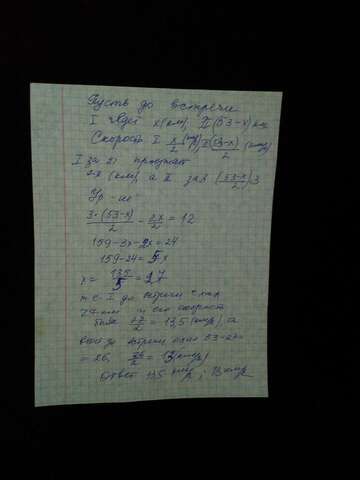 Пусть до встречи
I едет x(км), II (53-x) км
Скорость I x/2 (км/ч), II (53-x)/2 (км/ч)
I за 2ч проедет
2x (км), а II за 3 (53-x)/2 3
Ур-ие
3·(53-x)/2 - 2x/2 = 12
159-3x-2x=24
159-24=5x
x= 135/5 =27
т.е. I до встречи
27 км и его скорость
была 27/2 = 13,5 (км/ч), а
до встречи 53-27=
=26, 26/2 = 13(км/ч)
Ответ 13,5 км/ч; 13 км/ч